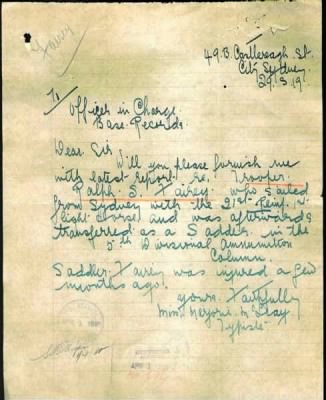 Fairey
49.B. Castlereagh St.
City Sydney.
29.3.19.
To/
Officer in Charge.
Base. Records.
Dear Sir
Will you please furnish me
with latest report re. Trooper.
Ralph S. Fairey. who sailed
from Sydney with the 21st Reinf. 1st
Light Horse) and was afterwards
transferred as a Saddler. in the
5th Divisional Ammunition
Column.
Saddler Fairey was injured a few
months ago.
yours. Faithfully
Miss Marjorie
Typiste